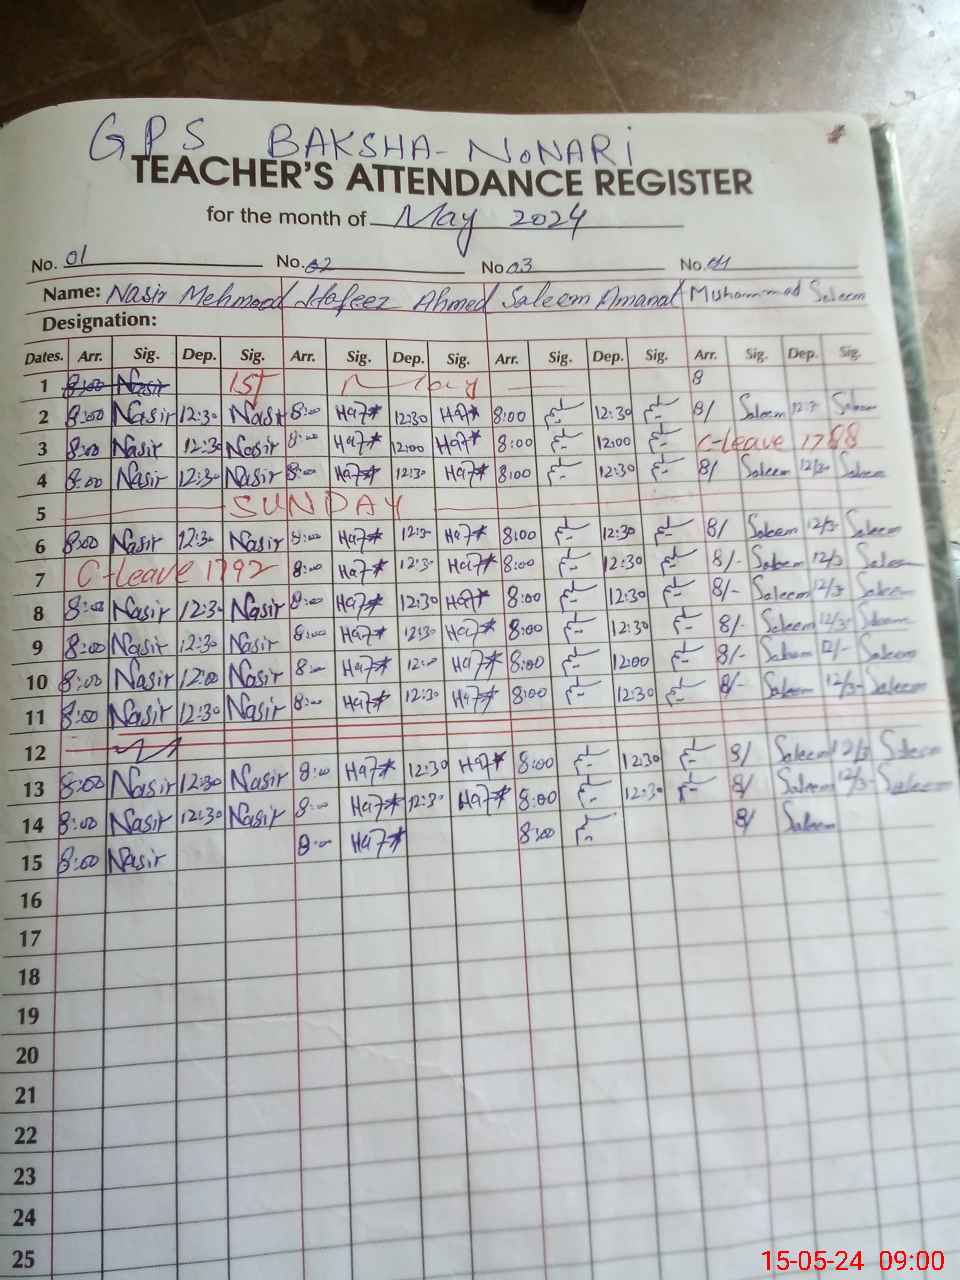 GPS BAKSHA-NONARI
TEACHER'S ATTENDANCE REGISTER
for the month of May 2024
No. 01 No. 02 No 03 No. 04
Name: Nasir Mehmood Hafeez Ahmed Saleem Amanat Muhammad Saleem
Designation:
Dates. Arr. Sig. Dep. Sig. Arr. Sig. Dep. Sig. Arr. Sig. Dep. Sig. Arr. Sig. Dep. Sig.
1 8:00 Nasir 1st May 8
2 8:00 Nasir 12:30 Nasir 8:00 12:30 8:00 12:30 8/ Saleem 12/3 Saleem
3 8:00 Nasir 12:30 Nasir 8:00 12:00 8:00 12:00 C-Leave 1788
4 8:00 Nasir 12:30 Nasir 8:00 12:30 8:00 12:30 8/ Saleem 12/3- Saleem
5 SUNDAY
6 8:00 Nasir 12:30 Nasir 8:00 12:30 8:00 12:30 8/ Saleem 12/3- Saleem
7 C-Leave 1792 8:00 12:30 8:00 12:30 8/- Saleem 12/3 Saleem
8 8:00 Nasir 12:30 Nasir 8:00 12:30 8:00 12:30 8/- Saleem 12/3 Saleem
9 8:00 Nasir 12:30 Nasir 8:00 12:30 8:00 12:30 8/- Saleem 12/3- Saleem
10 8:00 Nasir 12:00 Nasir 8:00 12:00 8:00 12:00 8/- Saleem 12/- Saleem
11 8:00 Nasir 12:30 Nasir 8:00 12:30 8:00 12:30 8/- Saleem 12/3- Saleem
12
13 8:00 Nasir 12:30 Nasir 8:00 12:30 8:00 12:30 8/ Saleem 12/3 Saleem
14 8:00 Nasir 12:30 Nasir 8:00 12:30 8:00 12:30 8/ Saleem 12/3- Saleem
15 8:00 Nasir 8:00 8:00 8/ Saleem
16
17
18
19
20
21
22
23
24
25
15-05-24 09:00